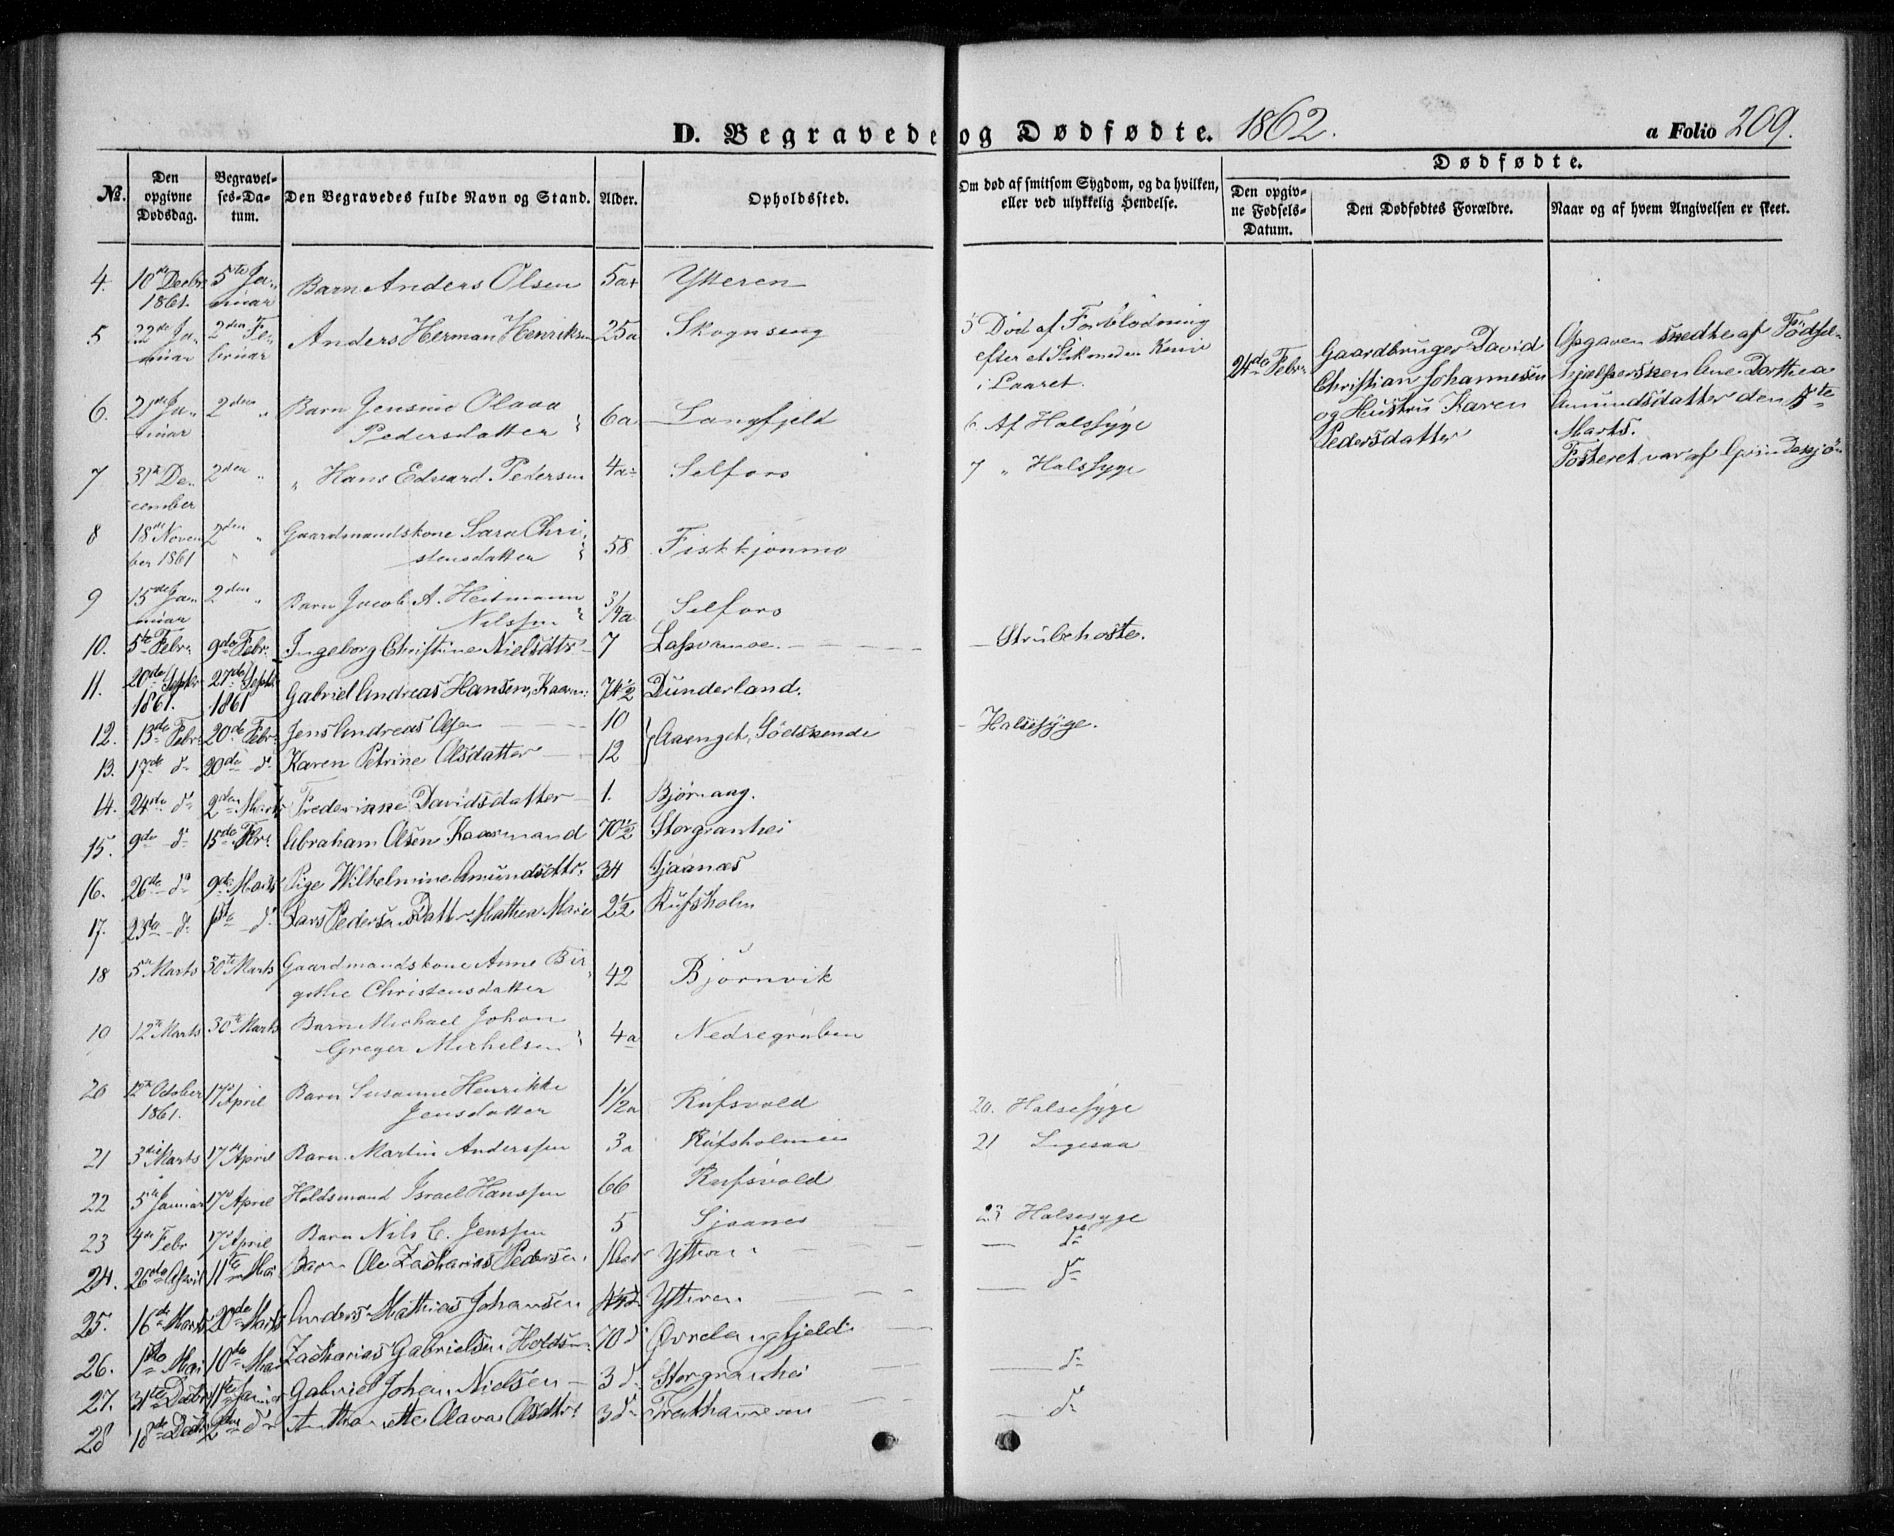 D. Begravede og Dødfødte. 1862. a Folio 209.
Dødfødte.
No. Den opgivne Dødsdag. Begravelses-Datum. Den Begravedes fulde Navn og Stand. Alder. Opholdssted. Om død af smitsom Sygdom, og da hvilken, eller ved ulykkelig Hendelse. Den opgivne Fødsels-Datum. Den Dødfødtes Forældre. Naar og af hvem Angivelsen er skeet.
4. 10de Decbr 1861. 5te Januar Barn Anders Olsen 5 aar Ytteren
5 22de Januar 2den Februar Anders Herman Henriksen 25a Skognseng 5 Død af Forblødning efter et Stik med en Kniv i Laaret.
24de Febr. Gaardbruger David Christian Johannesen og Hustru Karen Pedersdatter
Opgaven skedte af Födselhjælpersken Ane Dorthea Amundsdatter den 5te Marts.
Fosteret var af
6. 21de Januar 2den " Barn Jensine Olava Pedersdatter 6a Langfjeld 6. Af Halssyge
7 31te December 2den " " Hans Edvard Pedersen 4a Selfors 7 " Halssyge
8 18de November 1861 2den " Gaardmandskone Sara Christensdatter 58 Fiskkjønmo
9 15de Januar 2den " Barn Jacob A. Heitmann Nilssen 3/4a Selfors
10. 5te Febr. 9de Febr. Ingeborg Christine Nielsdtr 7 Strubehoste.
11. 20de Septbr 1861. 27de Septbr 1861 Gabriel Andreas Hansen, Kaarm: 74½ Dunderland.
12. 13de Febr. 20de Febr. Jens Andreas Ols: 10 Aaenget, Södskende Halsesyge.
13. 17de do 20de do Karen Petrine Olsdatter 12
14. 24de do 2den Marts Frederikke Davidsdatter 1. Bjørnaag.
15. 9de do 15de Febr. Abraham Olsen Kaarmand 70½ Storgranhei
16. 26de do 9de Marts Pige Wilhelmine Amundsdttr. 34 Sjaanæs
17. 23de do 1ste do Lars Pedersens Datt. Mathea Marie 2½ Rufsholm
18 5te Marts 30te Marts Gaardmandskone Anne Birgithe Christensdatter 42 Bjørnvik
19 12te Marts 30te Marts Barn Michael Johan Greger Michelsen 4a Nedregruben
20 12te October 1861. 17de April Barn Susanne Henrikke Jensdatter 1½a Rufsvold 20. Halsesyge
21 3die Marts 17de April Barn Martin Anderssen 3a Rufsholmen 21
22 5te Januar 17de April Holdsmand Israel Hanssen 66 Rufsvold
23 4de Febr 17de April Barn Nils C. Jenssen 5 Sjaanes 23 Halsesyge
24. 26de April 11te Mai Barn Ole Zacharias Pedersen Ytteren do
25. 16de Marts 20de Marts Anders Mathias Johansen Ytteren do
26. 1ste Mai 10de Mai Zacharias Gabrielsen Holdsm. 70 do Øvrelangfjeld
27. 31te Decbr 11te Januar Gabriel Johan Nielsen 3 do Storgranhei do
28 18de Decbr 2den do Anthonette Olava Olsdttr 3 do do